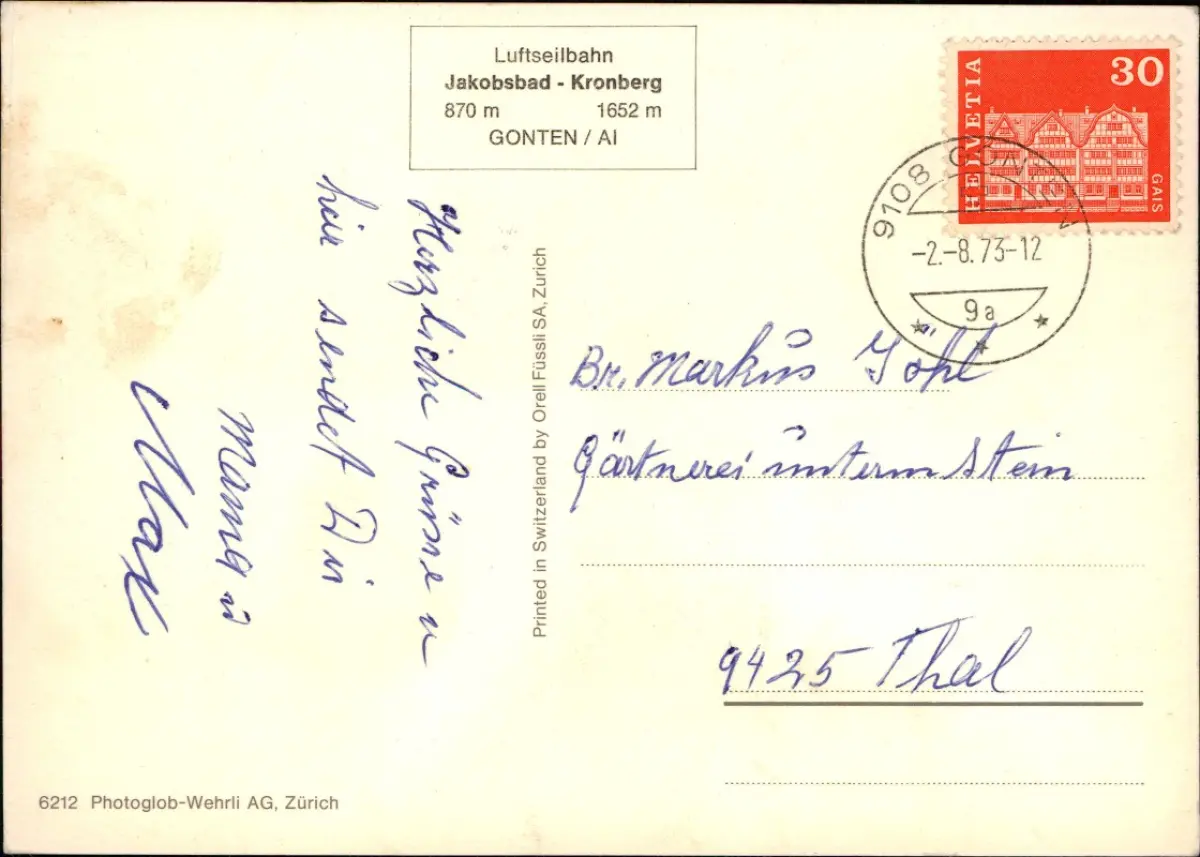 Luftseilbahn
Jakobsbad - Kronberg
870 m 1652 m
GONTEN / AI
HELVETIA
30
GAIS
9108 GONTEN
-2.-8.73-12
9a
Herzliche Grüsse u
hier sendet Dir
Mama u
Max
Printed in Switzerland by Orell Füssli SA, Zurich
Br. Markus Göhl
Gärtnerei unterm Stein
9425 Thal
6212 Photoglob-Wehrli AG, Zürich